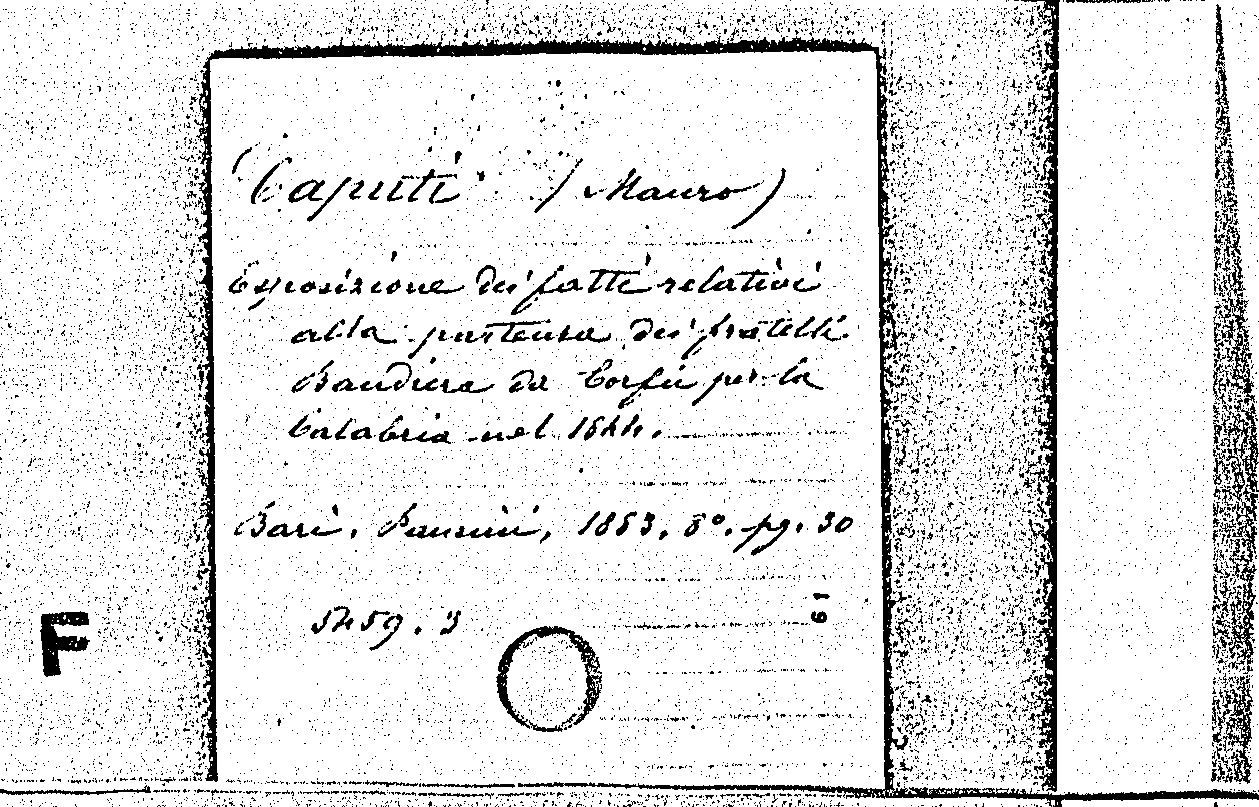 Caputi (Mauro)
Esposizione dei fatti relativi
alla partenza dei fratelli
Bandiera da Corfù per la
Calabria nel 1844.
Bari, Pansini, 1863, 8°. pg. 30
5459.3
61
F